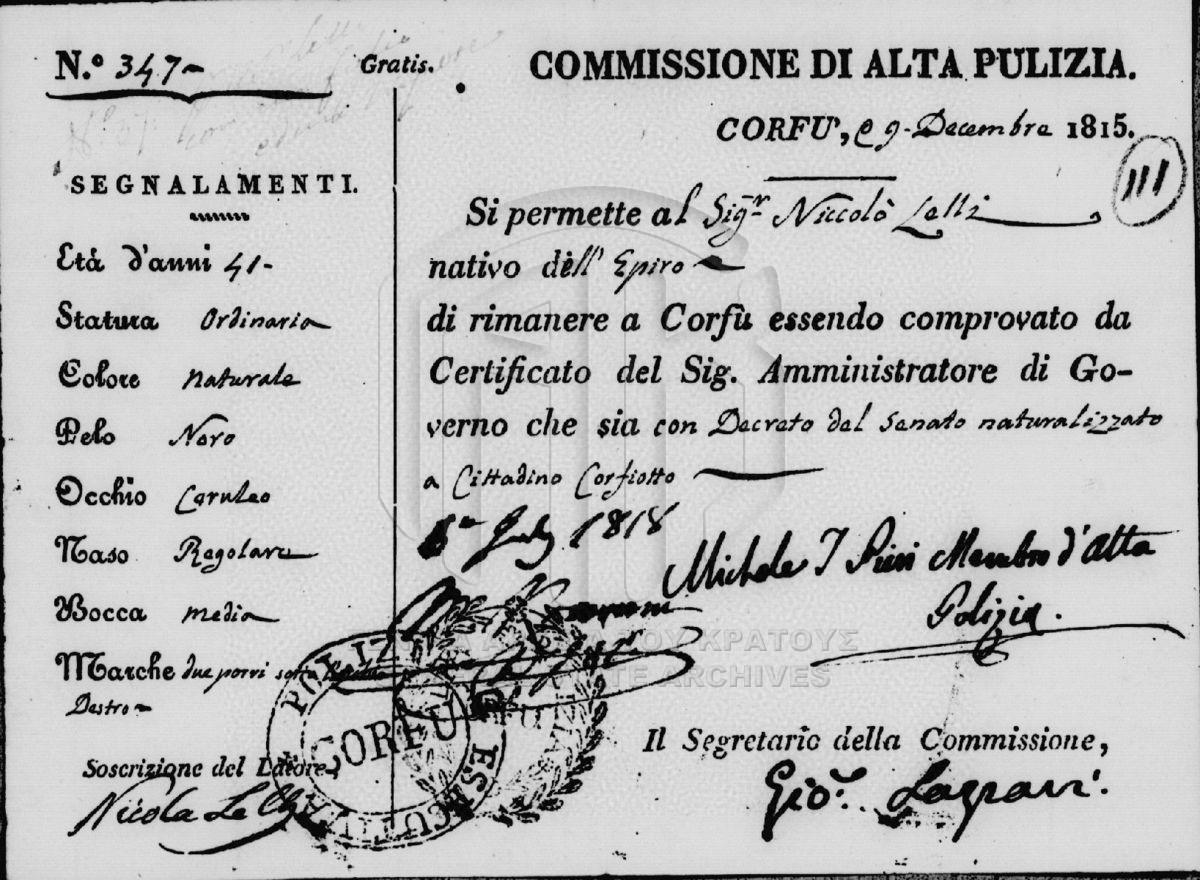 N.º 347
Gratis.
SEGNALAMENTI.
Età d'anni 41-
Statura Ordinaria
Colore naturale
Pelo Nero
Occhio Ceruleo
Naso Regolare
Bocca media
Marche due porri sotto
Destro
Soscrizione del Latore,
Nicola Lelli
COMMISSIONE DI ALTA PULIZIA.
CORFU', 9 Decembre 1815.
111
Si permette al Sigʳ Niccolò Lelli
nativo dell' Epiro
di rimanere a Corfù essendo comprovato da
Certificato del Sig. Amministratore di Go-
verno che sia con Decreto del Senato naturalizzato
a Cittadino Corfiotto
July 1818
Michele Membro d'Alta
Polizia.
Il Segretario della Commissione,
Gio.
POLIZIA ESECUTIVA
CORFU
ΚΡΑΤΟΥΣ
STATE ARCHIVES